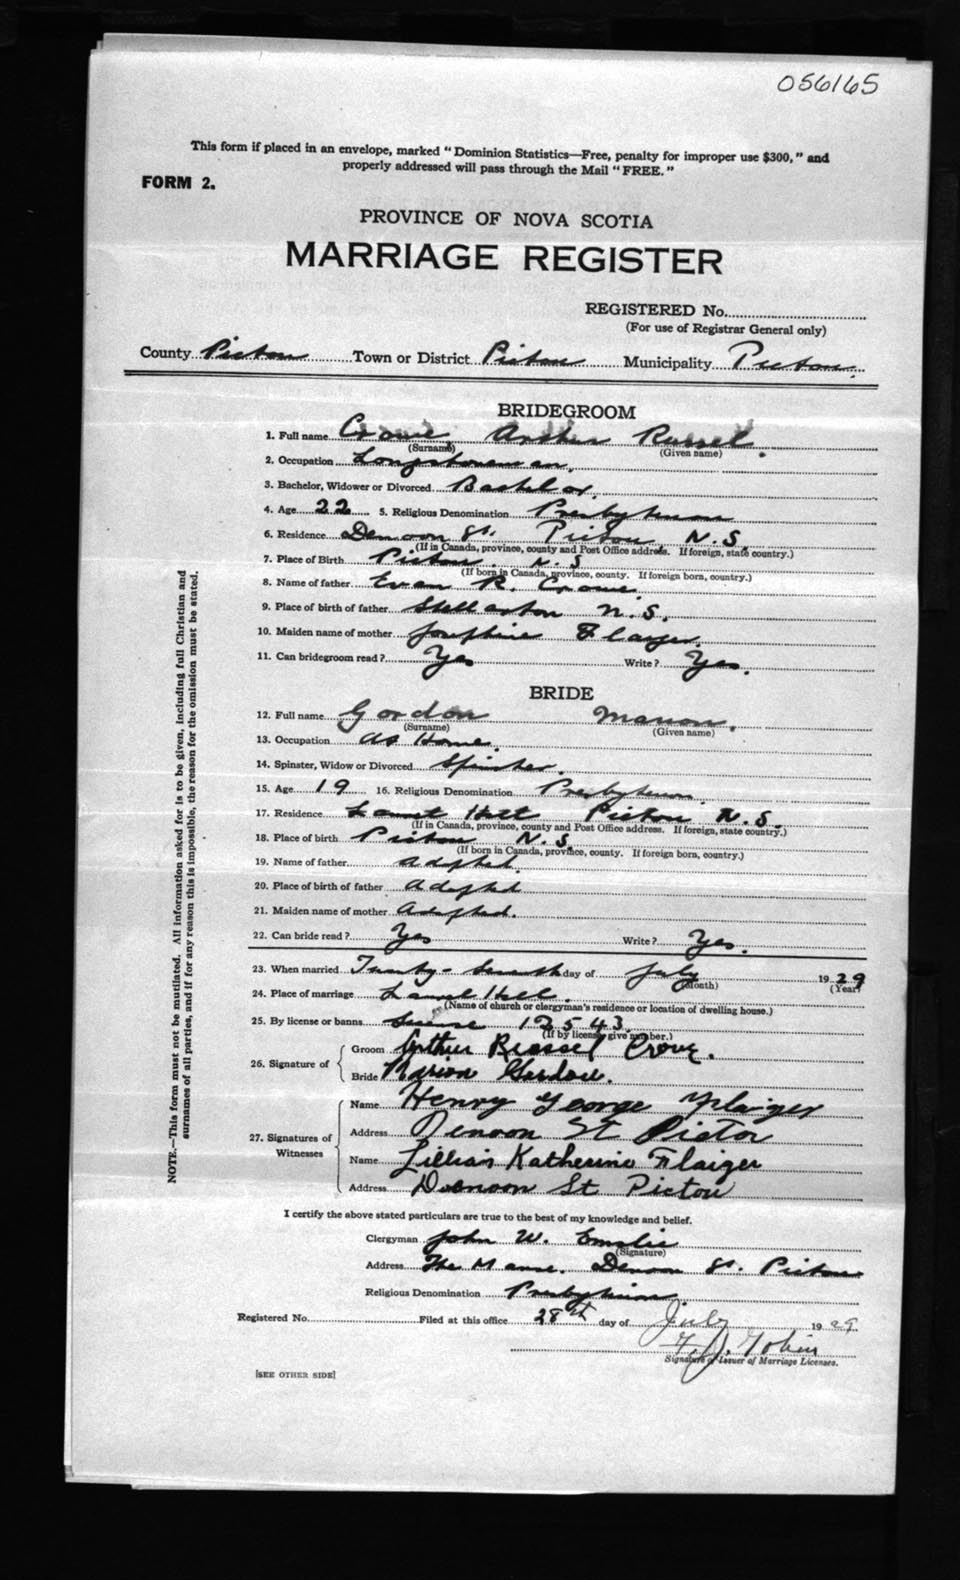 056165
This form if placed in an envelope, marked "Dominion Statistics—Free, penalty for improper use $300," and
properly addressed will pass through the Mail "FREE."
FORM 2.
PROVINCE OF NOVA SCOTIA
MARRIAGE REGISTER
REGISTERED No.
(For use of Registrar General only)
County Pictou Town or District Pictou Municipality Pictou.
BRIDEGROOM
1. Full name Crowe, Arthur Russel.
(Surname) (Given name)
2. Occupation Longshoreman.
3. Bachelor, Widower or Divorced Bachelor.
4. Age 22 5. Religious Denomination Presbyterian
6. Residence Denoon St. Pictou, N.S.
(If in Canada, province, county and Post Office address. If foreign, state country.)
7. Place of Birth Pictou, N.S
(If born in Canada, province, county. If foreign born, country.)
8. Name of father Evan R. Crowe.
9. Place of birth of father Stellarton N.S.
10. Maiden name of mother Josephine Flaiger.
11. Can bridegroom read? Yes Write? Yes.
BRIDE
12. Full name Gordon Marion.
(Surname) (Given name)
13. Occupation At Home.
14. Spinster, Widow or Divorced Spinster.
15. Age 19 16. Religious Denomination Presbyterian.
17. Residence Laurel Hill Pictou N.S.
(If in Canada, province, county and Post Office address. If foreign, state country.)
18. Place of birth Pictou N.S.
(If born in Canada, province, county. If foreign born, country.)
19. Name of father Adopted.
20. Place of birth of father Adopted
21. Maiden name of mother Adopted.
22. Can bride read? Yes Write? Yes.
23. When married Twenty-Seventh day of July 1929
(Month) (Year)
24. Place of marriage Laurel Hill.
(Name of church or clergyman's residence or location of dwelling house.)
25. By license or banns license 12543.
(If by license give number.)
26. Signature of
Groom Arthur Russel Crowe.
Bride Marion Gordon.
27. Signatures of Witnesses
Name Henry George Flaiger
Address Denoon St Pictou
Name Lillias Katherine Flaiger
Address Denoon St Pictou
I certify the above stated particulars are true to the best of my knowledge and belief.
Clergyman John W. Emslie
(Signature)
Address The Manse. Denoon St. Pictou
Religious Denomination Presbyterian.
Registered No. Filed at this office 28th day of July 1929
Signature of Issuer of Marriage Licenses.
[SEE OTHER SIDE]
NOTE.—This form must not be mutilated. All information asked for is to be given, including full Christian and
surnames of all parties, and if for any reason this is impossible, the reason for the omission must be stated.